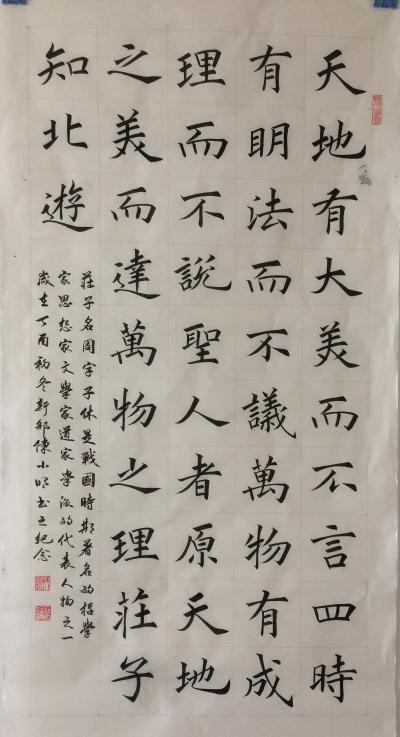 天地有大美而不言四時
有明法而不議萬物有成
理而不說聖人者原天地
之美而達萬物之理莊子
知北遊
莊子名周字子休是戰國時期著名的哲學
家思想家文學家道家學派的代表人物之一
歲在丁酉初冬新鄉陳小明書之紀念